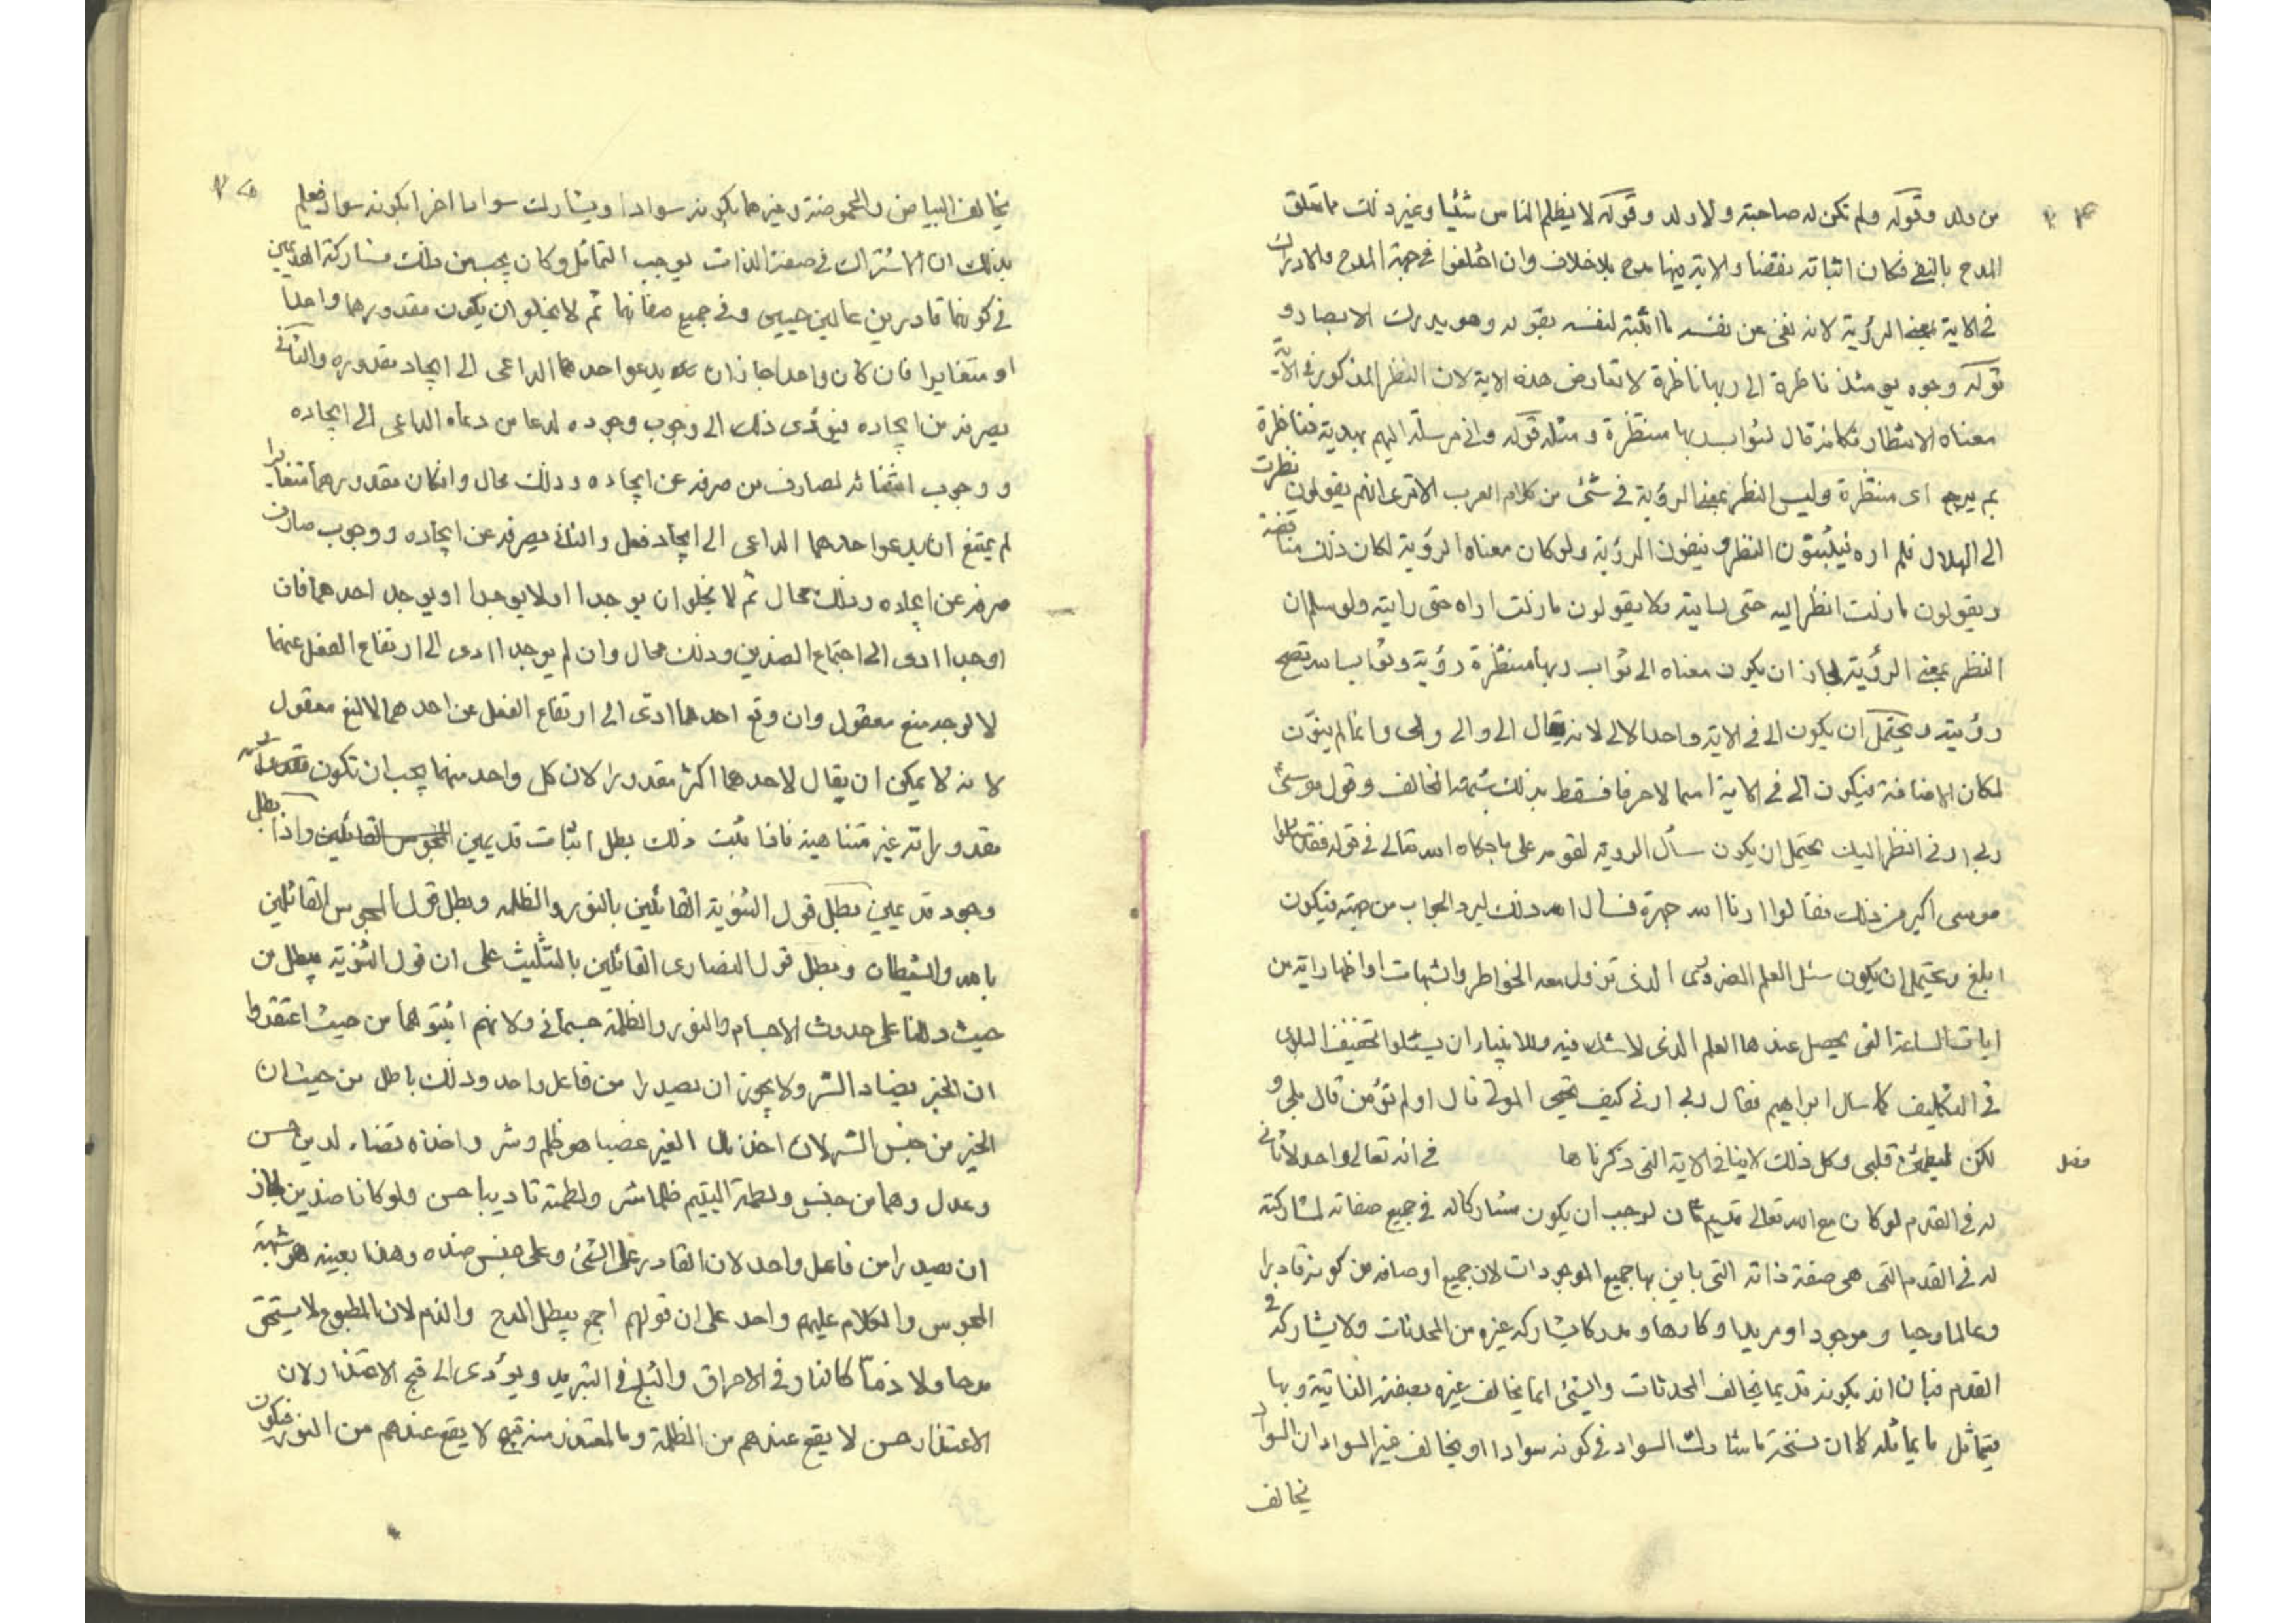 من ولد وقوله ولم تكن له صاحبة ولا ولد وقوله لا يظلم الناس شيئا وغير ذلك مما تعلق
المدح بالنفي فكان اثباته نقضا والاية فيها مدح بلا خلاف وان اختلفوا في جهة المدح والادراك
في الاية بمعنى الرؤية لانه نفى عن نفسه ما اثبته لنفسه بقوله وهو يدرك الابصار و
قوله وجوه يومئذ ناضرة الى ربها ناظرة لا تعارض هذه الاية لان النظر المذكور في الاية
معناه الانتظار فكانه قال لثواب ربها منتظرة ومثله قوله واني مرسلة اليهم بهدية فناظرة
بم يرجع اى منتظرة وليس النظر بمعنى الرؤية في شئ من كلام العرب الا ترى انهم يقولون نظرت
الى الهلال فلم اره فيثبتون النظر وينفون الرؤية ولو كان معناه الرؤية لكان ذلك مناقضة
ويقولون ما زلت انظر اليه حتى رايته ولا يقولون ما زلت اراه حتى رايته ولو سلم ان
النظر بمعنى الرؤية لجاز ان يكون معناه الى ثواب ربها منتظرة رؤية وثواب الله تصح
رؤيته ويحتمل ان يكون الى في الاية واحد الالاء لانه يقال الى والى والى وانما لم ينون
لمكان الاضافة فيكون الى في الاية اسما لا حرفا فسقط بذلك شبهة المخالف وقول موسى
رب ارنى انظر اليك يحتمل ان يكون سأل الرؤية لقومه على ما حكاه الله تعالى في قوله فقد سالوا
موسى اكبر من ذلك فقالوا ارنا الله جهرة فسال الله ذلك ليرد الجواب من جهته فيكون
ابلغ ويحتمل ان يكون سئل العلم الضرورى الذى تزول معه الخواطر والشبهات او اظهار اية من
ايات الساعة التى يحصل عندها العلم الذى لا شك فيه وللانبياء ان يسئلوا تخفيف البلوى
في التكليف كما سال ابراهيم فقال رب ارنى كيف تحيى الموتى قال اولم تؤمن قال بلى و
لكن ليطمئن قلبى وكل ذلك لا ينافي الاية التى ذكرناها في انه تعالى واحد لا ثانى
فصل
له في القدم لو كان مع الله تعالى قديم ثان لوجب ان يكون مشاركا له في جميع صفاته لمشاركته
له في القدم التى هى صفة ذاته التى باين بها جميع الموجودات لان جميع اوصافه من كونه قادرا
وعالما وحيا وموجودا ومريدا وكارها ومدركا يشاركه غيره من المحدثات ولا يشاركه في
القدم فبان انه بكونه قديما يخالف المحدثات والشئ انما يخالف غيره بصفته الذاتية وبها
يتماثل ما يماثله كما ان ما شارك السواد في كونه سوادا او يخالف غير السواد ان السواد
يخالف
يخالف البياض والحموضة وغيرهما بكونه سوادا ويشارك سوادا اخر بكونه سوادا فعلم
بذلك ان الاشتراك في صفة الذات يوجب التماثل وكان يجب من ذلك مشاركة القديمين
في كونهما قادرين عالمين حيين وفي جميع صفاتهما ثم لا يخلو ان يكون مقدورهما واحدا
او متغايرا فان كان واحدا جاز ان يدعو احدهما الداعى الى ايجاد مقدوره والثانى
يصرفه من ايجاده فيؤدى ذلك الى وجوب وجوده لدعا من دعاه الداعى الى ايجاده
ووجوب انتفائه لصارف من صرفه عن ايجاده وذلك محال وان كان مقدورهما متغايرا
لم يمتنع ان يدعو احدهما الداعى الى ايجاد فعل والثانى يصرفه عن ايجاده ووجوب صارف
صرفه عن ايجاده وذلك محال ثم لا يخلو ان يوجدا او لا يوجدا او يوجد احدهما فان
اوجدا ادى الى اجتماع الضدين وذلك محال وان لم يوجدا ادى الى ارتفاع الفعل عنهما
لا لوجه منع معقول وان وقع احدهما ادى الى ارتفاع الفعل عن احدهما لا لمنع معقول
لانه لا يمكن ان يقال لاحدهما اكثر مقدورا لان كل واحد منهما يجب ان تكون
مقدوراته غير متناهية فاذا ثبت ذلك بطل اثبات قديمين واذا بطل
وجود قديمين بطل قول الثنوية القائلين بالنور والظلمة وبطل قول المجوس القائلين
بالله والشيطان وبطل قول النصارى القائلين بالتثليث على ان قول الثنوية يبطل من
حيث دللنا على حدوث الاجسام والنور والظلمة جسمانى ولانهم اثبتوهما من حيث اعتقدوا
ان الخير يضاد الشر ولا يجوز ان يصدرا من فاعل واحد وذلك باطل من حيث ان
الخير من جنس الشر لان اخذ مال الغير غصبا هو ظلم وشر واخذه قضاء لدين حسن
وعدل وهما من جنس ولطمة اليتيم ظلما شر ولطمته تاديبا حسن ولو كانا ضدين لجاز
ان يصدرا من فاعل واحد لان القادر على الشئ وعلى جنس ضده وهذا بعينه هو شبهة
المجوس والكلام عليهم واحد على ان قولهم اجمع يبطل المدح والذم لان المطبوع لا يستحق
مدحا ولا ذمّا كالنار في الاحراق والثلج في التبريد ويؤدى الى قبح الاعتذار لان
الاعتذار حسن لا يقع عندهم من الظلمة وما المعتذر منه قبيح لا يقع عندهم من النور فيكون